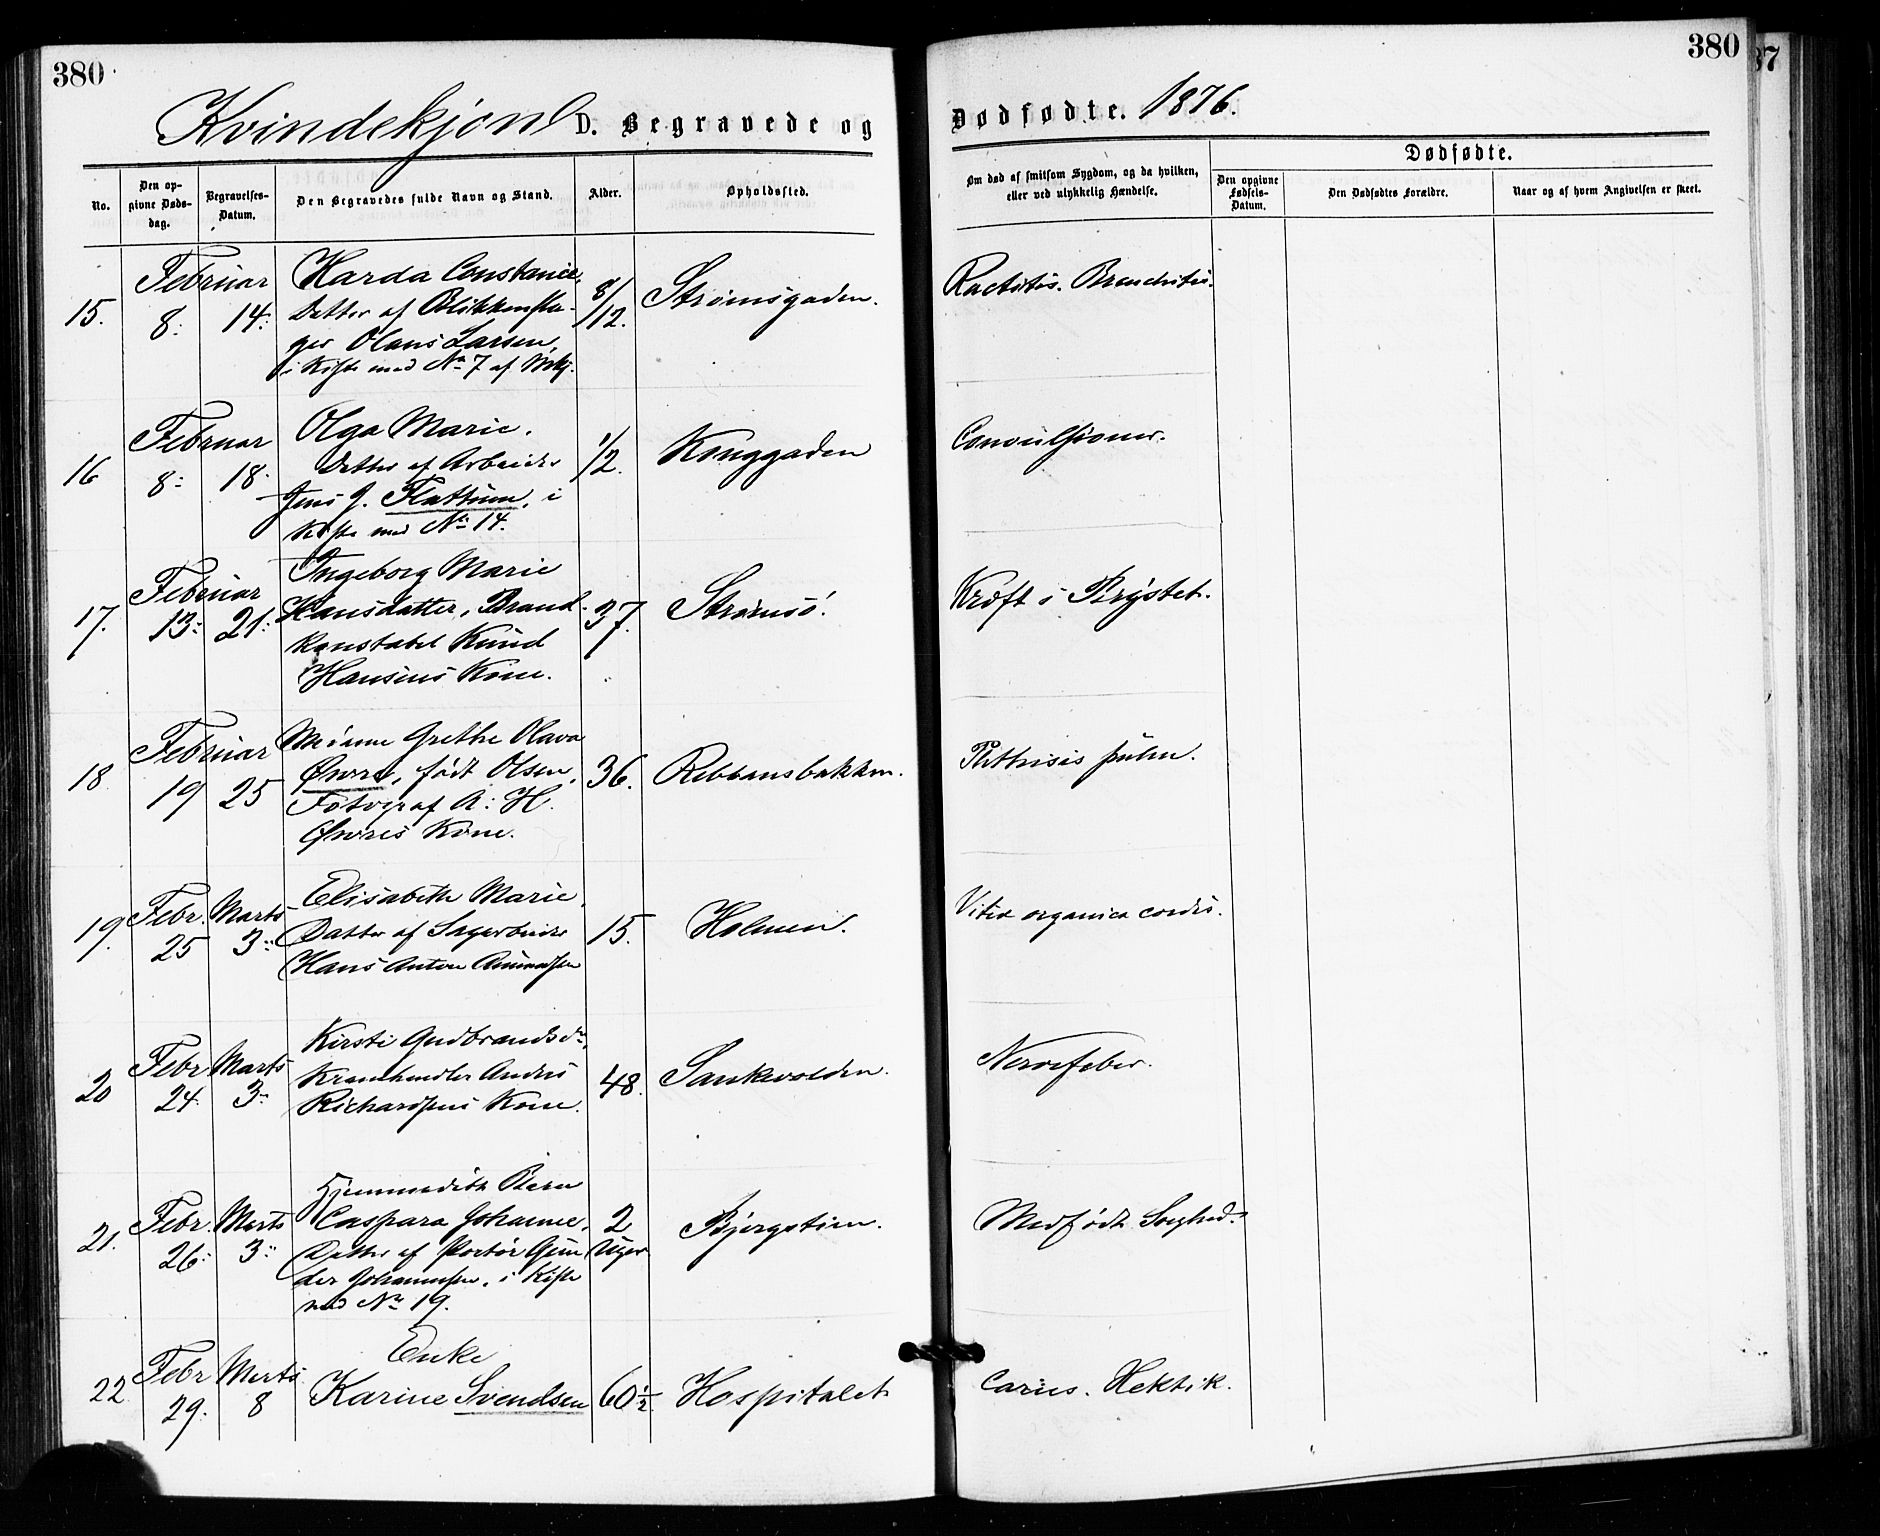 380
380
87
Kvindekjøn D. Begravede og Dødfødte. 1876.
No.
Den op-
givne Døds-
dag.
Begravelses-
Datum.
Den Begravedes fulde Navn og Stand.
Alder.
Opholdssted.
Om død af smitsom Sygdom, og da hvilken,
eller ved ulykkelig Hændelse.
Dødfødte.
Den opgivne
Fødsels-
Datum.
Den Dødfødtes Forældre.
Naar og af hvem Angivelsen er skeet.
15.
Februar
8: 14:
Harda Constance,
Datter af Blikkensla-
ger Olaus Larsen,
i Kiste med No 7 af Mkj.
8/12.
Strømsgaden.
Rachitis. Bronchitis.
16
Februar
8: 18.
Olga Marie.
Datter af Arbeider
Jens J. Flattum, i
Kiste med No 14.
1/2.
Konggaden
Convulsioner.
17.
Februar
13: 21:
Ingeborg Marie
Hansdatter, Brand-
konstabel Knud
Hansens Kone.
37.
Strømsö.
Kræft i Brystet.
18
Februar
19 25
Grethe Olava
Øvere, født Olsen,
Fotograf A: H.
Øveres Kone.
36.
Rebbansbakken.
Phthisis pulm.
19.
Febr. Marts
25 3:
Elisabeth Marie,
Datter af Sagarbeider
Hans Anton Amundsen
15.
Holmen.
Vitia organica cordis.
20
Febr Marts
24. 3:
Kirsti Gudbrandsdr,
Kramhandler Anders
Richardsens Kone.
48.
Sankevolden.
Nervefeber.
21.
Febr. Marts
26: 3:
Hjemmedøbt Barn
Caspara Johanne,
Datter af Portör Gun-
der Johannesen, i Kiste
med No 19.
2
Uger
Bjergstien.
Medfødt Svaghed.
22
Febr Marts
29. 8
Enke
Karine Svendsen
60 1/2.
Hospitalet
Caries. Hektik.